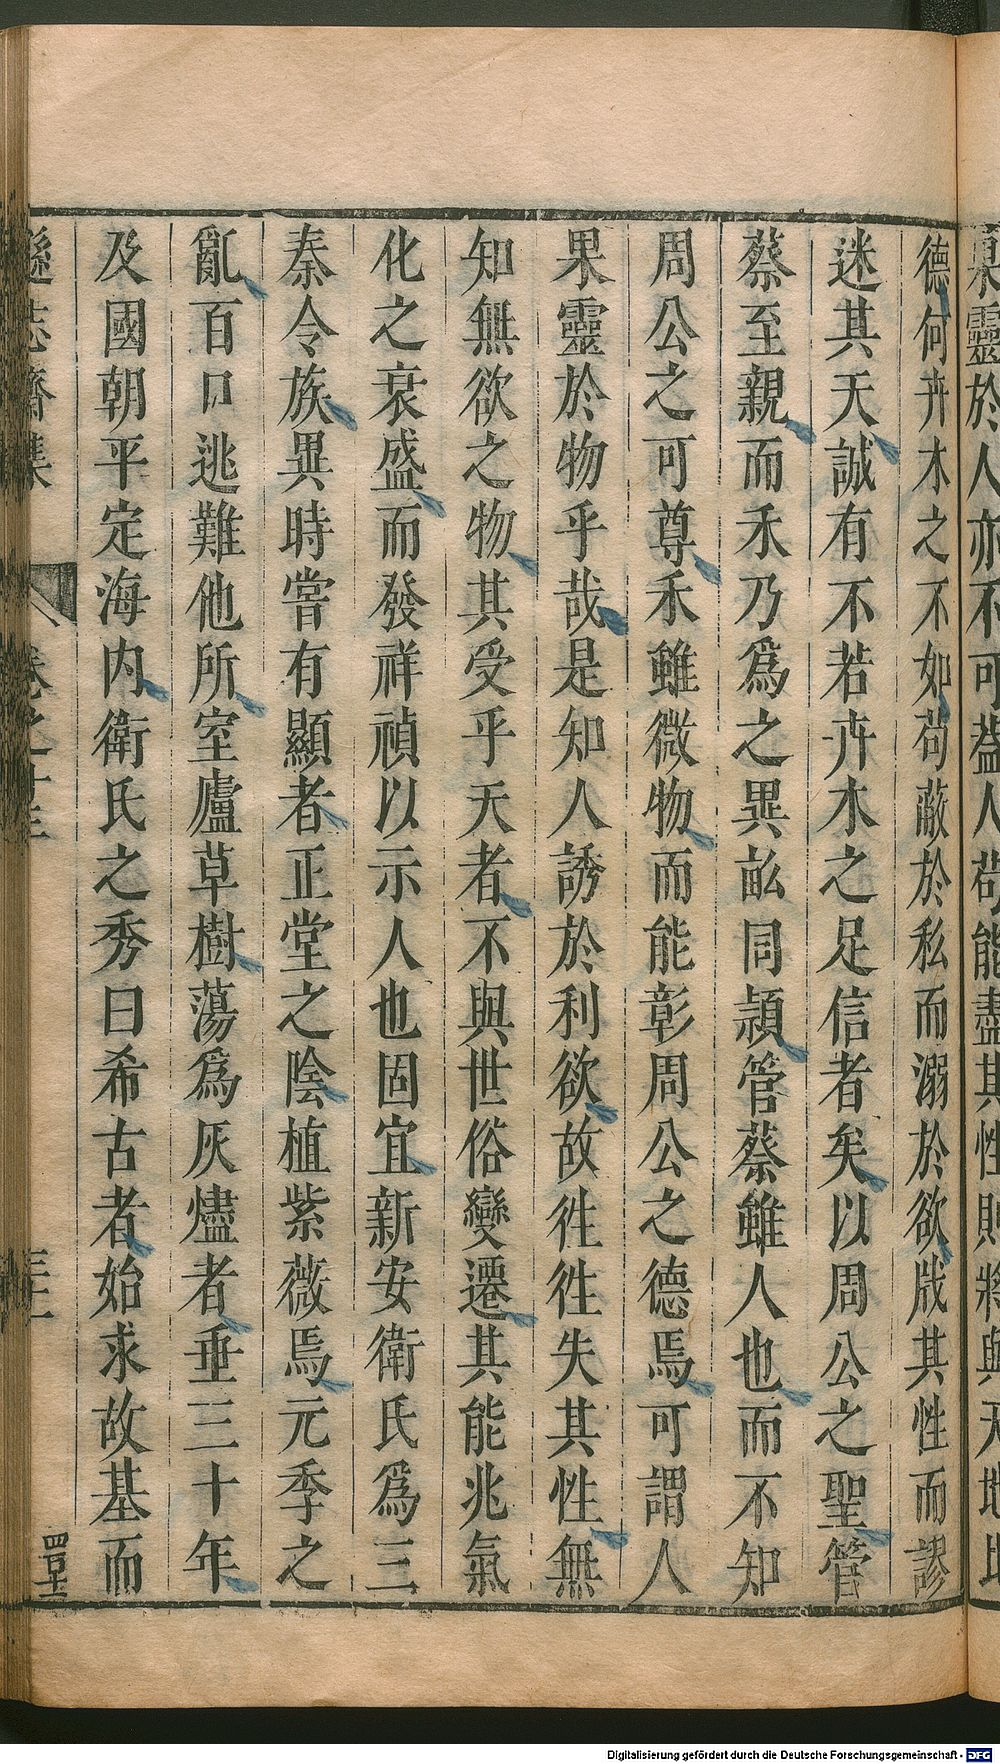 果靈於人亦不可葢人苟能盡其性則將與天地比
德何卉木之不如茍蔽於私而溺於欲戕其性而謬
迷其天誠有不若卉木之足信者矣以周公之聖管
蔡至親而禾乃爲之異畝同頴管蔡雖人也而不知
周公之可尊禾雖微物而能彰周公之德焉可謂人
果靈於物乎哉是知人誘於利欲故徃徃失其性無
知無欲之物其受乎天者不與世俗變遷其能兆氣
化之衰盛而發祥禎以示人也固宜新安衛氏爲三
秦令族異時嘗有顯者正堂之陰植紫薇焉元季之
亂百口逃難他所室廬草樹蕩爲灰燼者垂三十年
及國朝平定海内衛氏之秀曰希古者始求故基而
遜志齋集
卷之十三
三十一
Digitalisierung gefördert durch die Deutsche Forschungsgemeinschaft - DFG